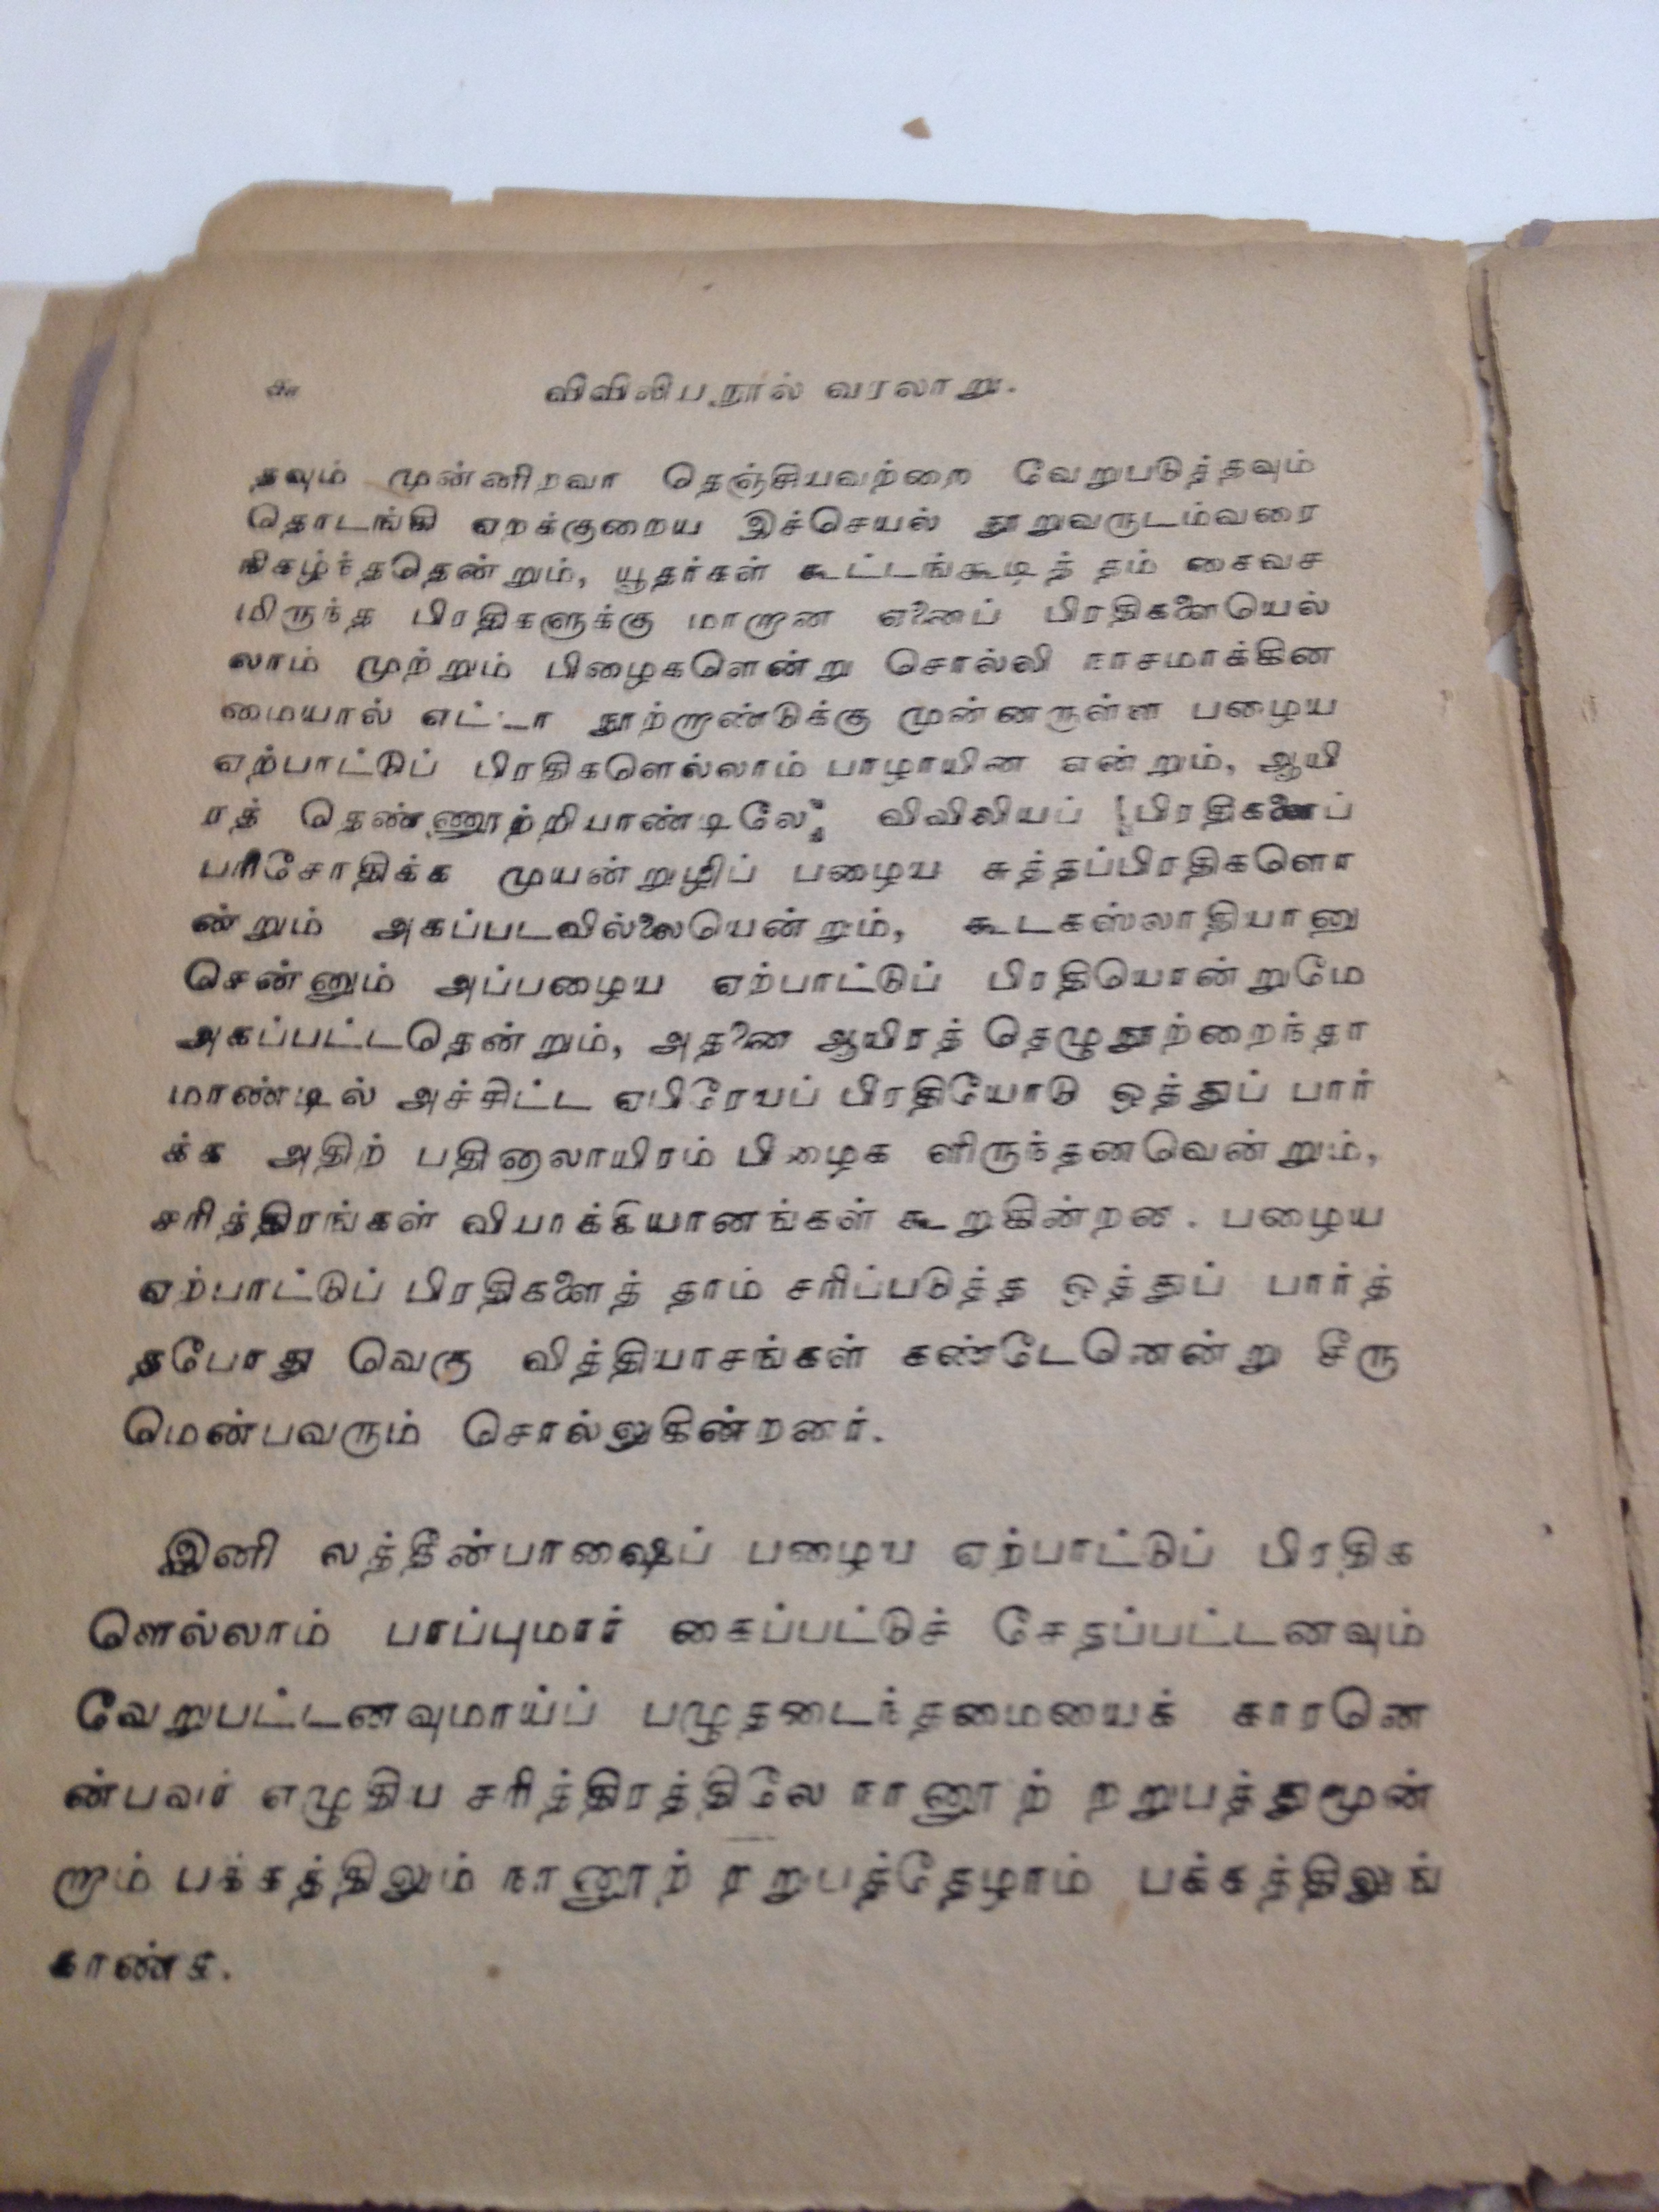 ௬ விவிலியநூல் வரலாறு.
தவும் முன்னிறவா தெஞ்சியவற்றை வேறுபடுத்தவும்
தொடங்கி ஏறக்குறைய இச்செயல் நூறுவருடம்வரை
நிகழ்ந்ததென்றும், யூதர்கள் கூட்டங்கூடித் தம் கைவச
மிருந்த பிரதிகளுக்கு மாறான ஏனைப் பிரதிகளையெல்
லாம் முற்றும் பிழைகளென்று சொல்லி நாசமாக்கின
மையால் எட்டா நூற்றாண்டுக்கு முன்னருள்ள பழைய
ஏற்பாட்டுப் பிரதிகளெல்லாம் பாழாயின என்றும், ஆயி
ரத் தெண்ணூற்றியாண்டிலே விவிலியப் பிரதிகளைப்
பரிசோதிக்க முயன்றுழிப் பழைய சுத்தப்பிரதிகளொ
ன்றும் அகப்படவில்லையென்றும், கூடகஸ்லாதியானு
சென்னும் அப்பழைய ஏற்பாட்டுப் பிரதியொன்றுமே
அகப்பட்டதென்றும், அதனை ஆயிரத் தெழுநூற்றைந்தா
மாண்டில் அச்சிட்ட ஏபிரேயப் பிரதியோடு ஒத்துப் பார்
க்க அதிற் பதினாலாயிரம் பிழைக ளிருந்தனவென்றும்,
சரித்திரங்கள் வியாக்கியானங்கள் கூறுகின்றன. பழைய
ஏற்பாட்டுப் பிரதிகளைத் தாம் சரிப்படுத்த ஒத்துப் பார்த்
தபோது வெகு வித்தியாசங்கள் கண்டேனென்று சீரு
மென்பவரும் சொல்லுகின்றனர்.
இனி லத்தீன்பாஷைப் பழைய ஏற்பாட்டுப் பிரதிக
ளெல்லாம் பாப்புமார் கைப்பட்டுச் சேதப்பட்டனவும்
வேறுபட்டனவுமாய்ப் பழுதடைந்தமையைக் காரனெ
ன்பவர் எழுதிய சரித்திரத்திலே நானூற் றறுபத்துமூன்
றாம் பக்கத்திலும் நானூற் றறுபத்தேழாம் பக்கத்திலுங்
காண்க.